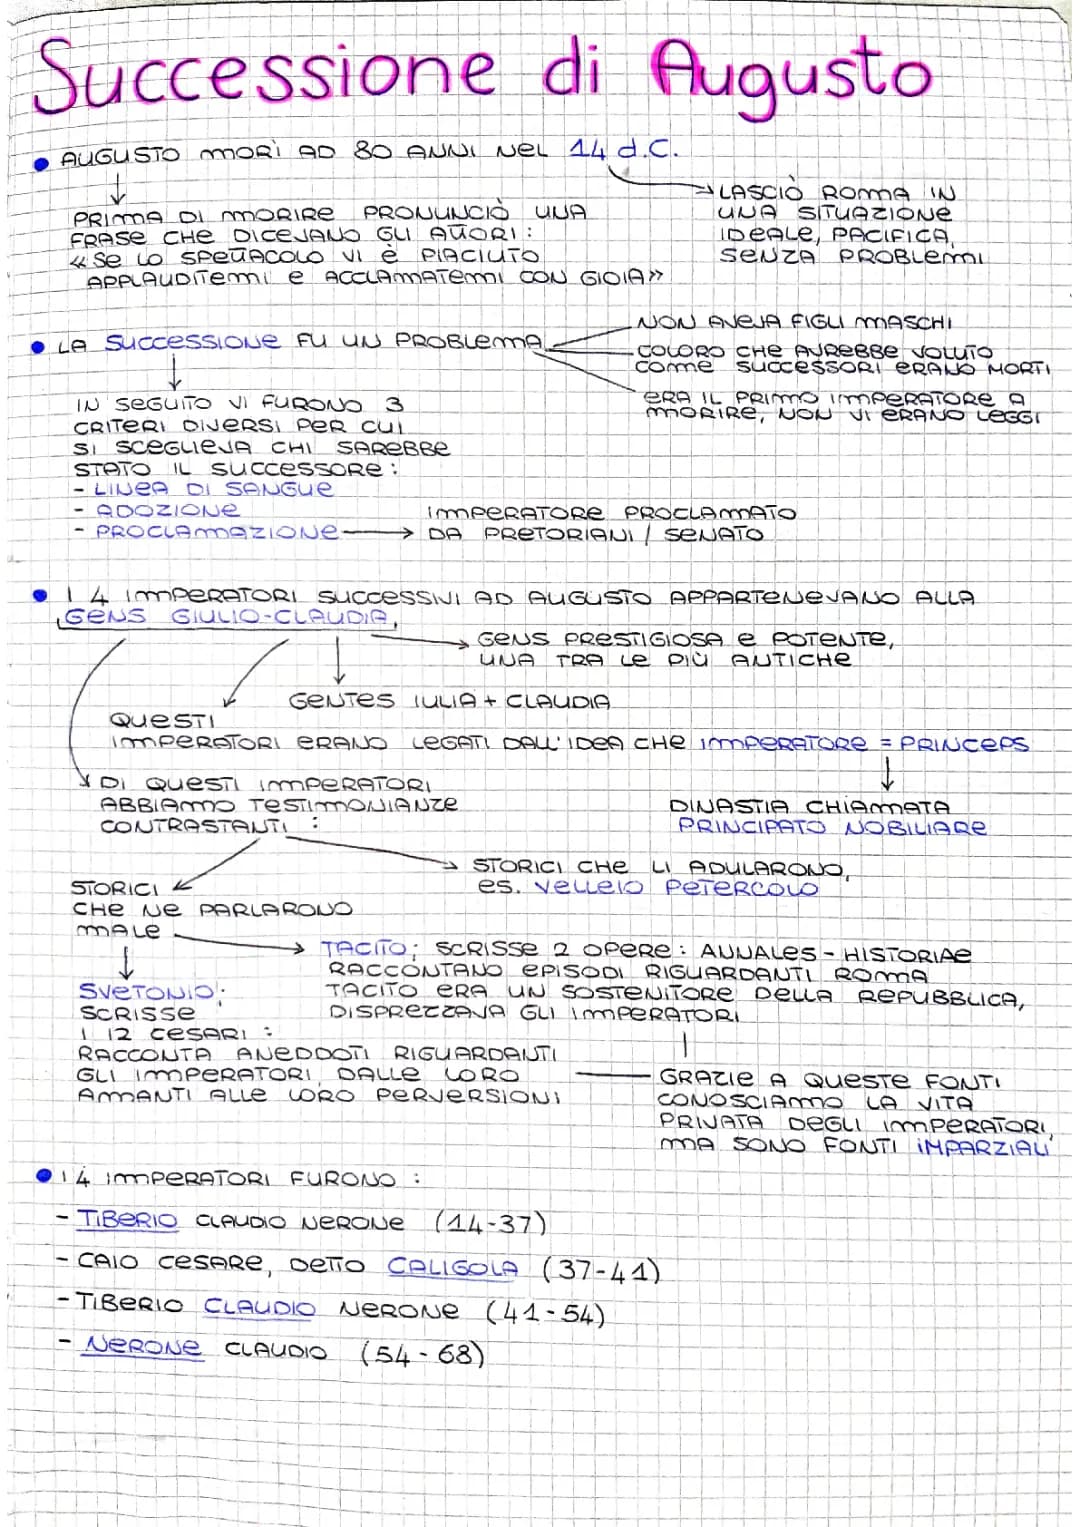 Successione di Augusto
• AUGUSTO MORÌ AD 80 ANNI NEL 14 d.C.
LASCIÒ ROMA IN
UNA SITUAZIONE
IDEALE, PACIFICA,
SENZA PROBLEMI
PRIMA DI MORIRE PRONUNCIÒ UNA
FRASE CHE DICEVANO GLI ATTORI:
«SE LO SPETTACOLO VI È PIACIUTO
APPLAUDITEMI E ACCLAMATEMI CON GIOIA»
• LA SUCCESSIONE FU UN PROBLEMA
NON AVEVA FIGLI MASCHI
COLORO CHE AVREBBE VOLUTO
COME SUCCESSORI ERANO MORTI
ERA IL PRIMO IMPERATORE A
MORIRE, NON VI ERANO LEGGI
IN SEGUITO VI FURONO 3
CRITERI DIVERSI PER CUI
SI SCEGLIEVA CHI SAREBBE
STATO IL SUCCESSORE:
- LINEA DI SANGUE
- ADOZIONE
- PROCLAMAZIONE → IMPERATORE PROCLAMATO
DA PRETORIANI / SENATO
• I 4 IMPERATORI SUCCESSIVI AD AUGUSTO APPARTENEVANO ALLA
GENS GIULIO-CLAUDIA,
GENS PRESTIGIOSA E POTENTE,
UNA TRA LE PIÙ ANTICHE
GENTES IULIA + CLAUDIA
QUESTI
IMPERATORI ERANO LEGATI DALL'IDEA CHE IMPERATORE = PRINCEPS
DINASTIA CHIAMATA
PRINCIPATO NOBILIARE
DI QUESTI IMPERATORI
ABBIAMO TESTIMONIANZE
CONTRASTANTI :
STORICI CHE LI ADULARONO,
es. VELLEIO PETERCOLO
STORICI
CHE NE PARLARONO
MALE
TACITO; SCRISSE 2 OPERE: ANNALES - HISTORIAE
RACCONTANO EPISODI RIGUARDANTI ROMA
TACITO ERA UN SOSTENITORE DELLA REPUBBLICA,
DISPREZZAVA GLI IMPERATORI
SVETONIO;
SCRISSE
I 12 CESARI :
RACCONTA ANEDDOTI RIGUARDANTI
GLI IMPERATORI DALLE LORO
AMANTI ALLE LORO PERVERSIONI
GRAZIE A QUESTE FONTI
CONOSCIAMO LA VITA
PRIVATA DEGLI IMPERATORI,
MA SONO FONTI IMPARZIALI
• I 4 IMPERATORI FURONO :
- TIBERIO CLAUDIO NERONE (14-37)
- CAIO CESARE, DETTO CALIGOLA (37-41)
- TIBERIO CLAUDIO NERONE (41-54)
- NERONE CLAUDIO (54-68)